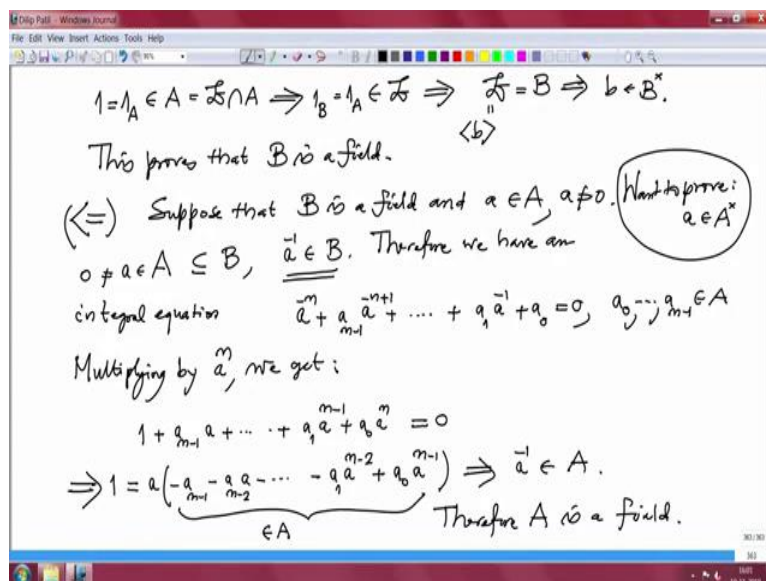 Dilip Patil - Windows Journal
File Edit View Insert Actions Tools Help
1 = 1_A ∈ A = 𝔟 ∩ A ⟹ 1_B = 1_A ∈ 𝔟 ⟹ 𝔟 = B ⟹ b ∈ B^×.
||
<b>
This proves that B is a field.
(<=) Suppose that B is a field and a ∈ A, a ≠ 0. Want to prove: a ∈ A^×
0 ≠ a ∈ A ⊆ B, a^{-1} ∈ B. Therefore we have an
integral equation a^{-n} + a_{n-1} a^{-n+1} + .... + a_1 a^{-1} + a_0 = 0, a_0, ..., a_{n-1} ∈ A
Multiplying by a^n, we get:
1 + a_{n-1} a + ... + a_1 a^{n-1} + a_0 a^n = 0
⟹ 1 = a(-a_{n-1} - a_{n-2} a - ... - a_1 a^{n-2} + a_0 a^{n-1}) ⟹ a^{-1} ∈ A.
∈ A
Therefore A is a field.
363/363
363